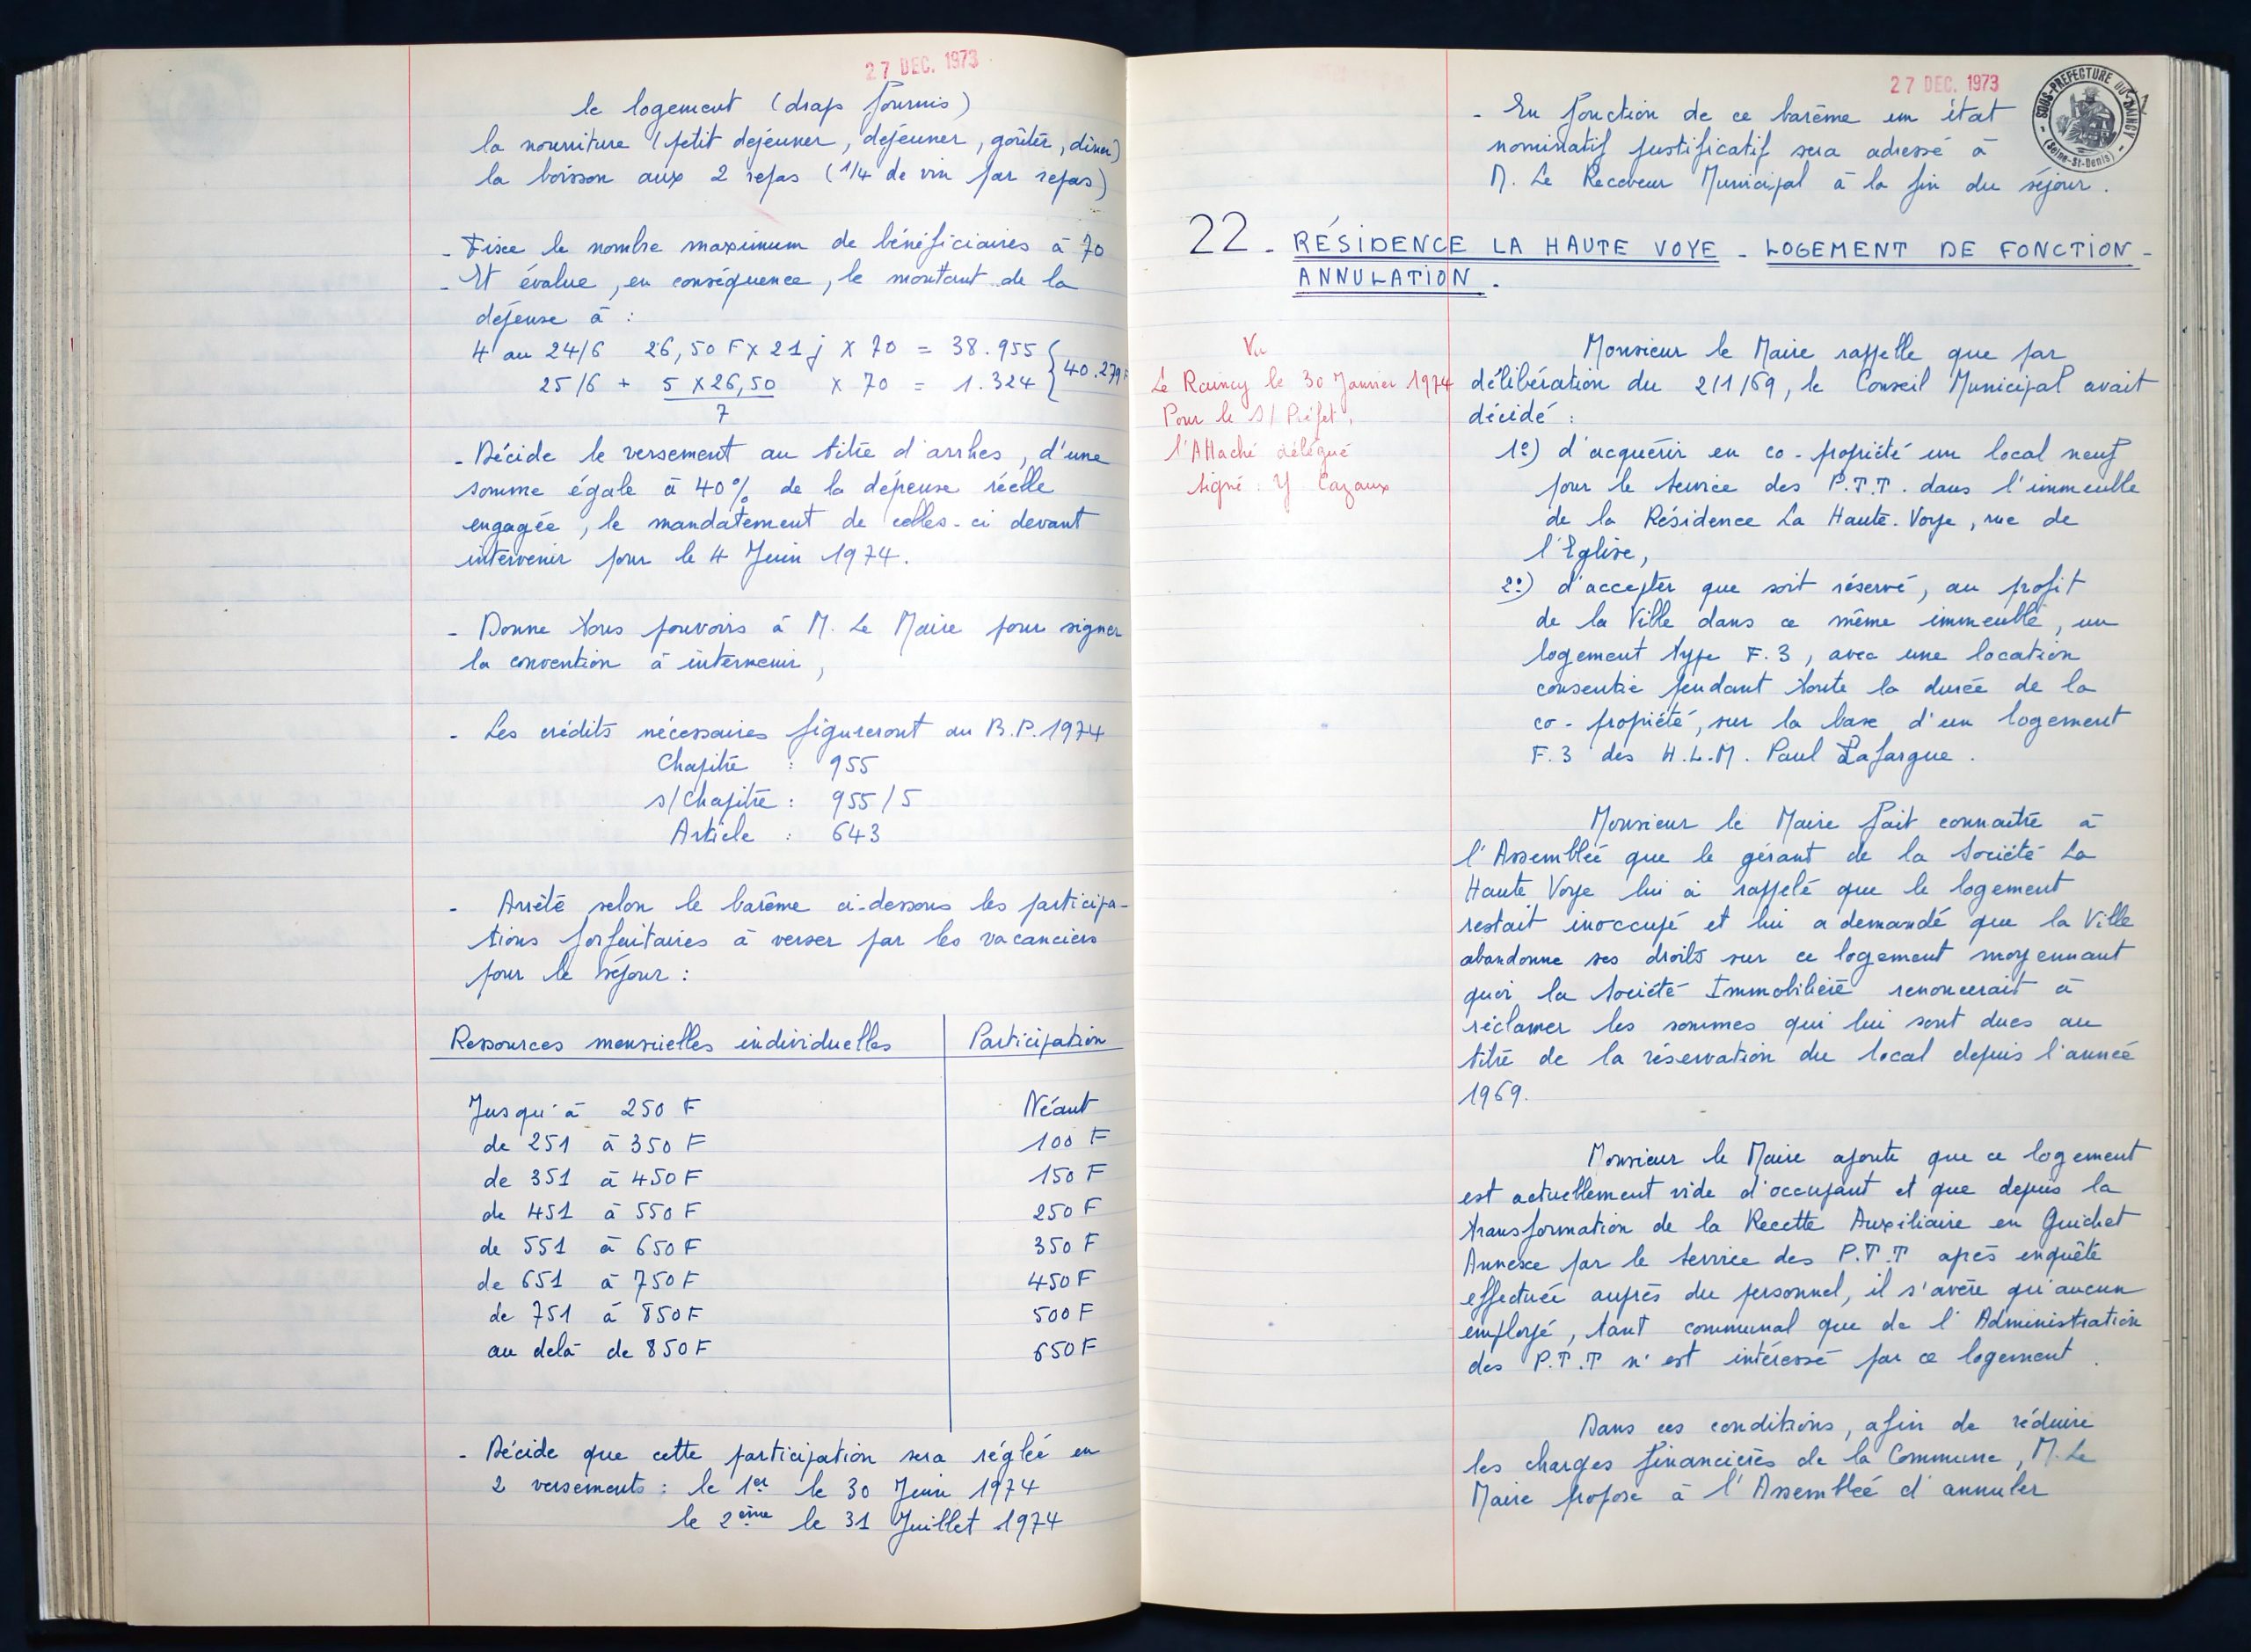 27 DEC. 1973
le logement (draps fournis)
la nourriture (petit dejeuner, dejeuner, goûter, diner)
la boisson aux 2 repas (1/4 de vin par repas)
- Fixe le nombre maximum de bénéficiaires à 70
- Et évalue, en conséquence, le montant de la
dépense à :
4 au 24/6 26,50 F x 21 j x 70 = 38.955
25/6 + 5 x 26,50 x 70 = 1.324 } 40.279 F
7
- Décide le versement au titre d'arrhes, d'une
somme égale à 40% de la dépense réelle
engagée, le mandatement de celles-ci devant
intervenir pour le 4 Juin 1974.
- Donne tous pouvoirs à M. Le Maire pour signer
la convention à intervenir,
- Les crédits nécessaires figureront au B.P. 1974
Chapitre : 955
s/Chapitre : 955/5
Article : 643
- Arrêté selon le barême ci-dessous les participa-
tions forfaitaires à verser par les vacanciers
pour le séjour :
Ressources mensuelles individuelles Participation
Jusqu'à 250 F Néant
de 251 à 350 F 100 F
de 351 à 450 F 150 F
de 451 à 550 F 250 F
de 551 à 650 F 350 F
de 651 à 750 F 450 F
de 751 à 850 F 500 F
au delà de 850 F 650 F
- Décide que cette participation sera réglée en
2 versements : le 1er le 30 Juin 1974
le 2ème le 31 Juillet 1974
27 DEC. 1973
SOUS-PREFECTURE DU RAINCY
(Seine-St-Denis)
- En fonction de ce barême un état
nominatif justificatif sera adressé à
M. Le Receveur Municipal à la fin du séjour.
22 - RÉSIDENCE LA HAUTE VOYE - LOGEMENT DE FONCTION -
ANNULATION.
Vu
Le Raincy le 30 Janvier 1974
Pour le S/Préfet,
l'Attaché délégué
signé : Y Cazaux
Monsieur le Maire rappelle que par
délibération du 2/1/69, le Conseil Municipal avait
décidé :
1º) d'acquérir en co-propriété un local neuf
pour le service des P.T.T. dans l'immeuble
de la Résidence La Haute-Voye, rue de
l'Eglise,
2º) d'accepter que soit réservé, au profit
de la Ville dans ce même immeuble, un
logement type F.3, avec une location
consentie pendant toute la durée de la
co-propriété, sur la base d'un logement
F.3 des H.L.M. Paul Lafargue.
Monsieur le Maire fait connaitre à
l'Assemblée que le gérant de la Société La
Haute Voye lui a rappelé que le logement
restait inoccupé et lui a demandé que la Ville
abandonne ses droits sur ce logement moyennant
quoi la Société Immobilière renoncerait à
réclamer les sommes qui lui sont dues au
titre de la réservation du local depuis l'année
1969.
Monsieur le Maire ajoute que ce logement
est actuellement vide d'occupant et que depuis la
transformation de la Recette Auxiliaire en Guichet
Annexe par le service des P.T.T après enquête
effectuée auprès du personnel, il s'avère qu'aucun
employé, tant communal que de l'Administration
des P.T.T n'est intéressé par ce logement.
Dans ces conditions, afin de réduire
les charges financières de la Commune, M. Le
Maire propose à l'Assemblée d'annuler